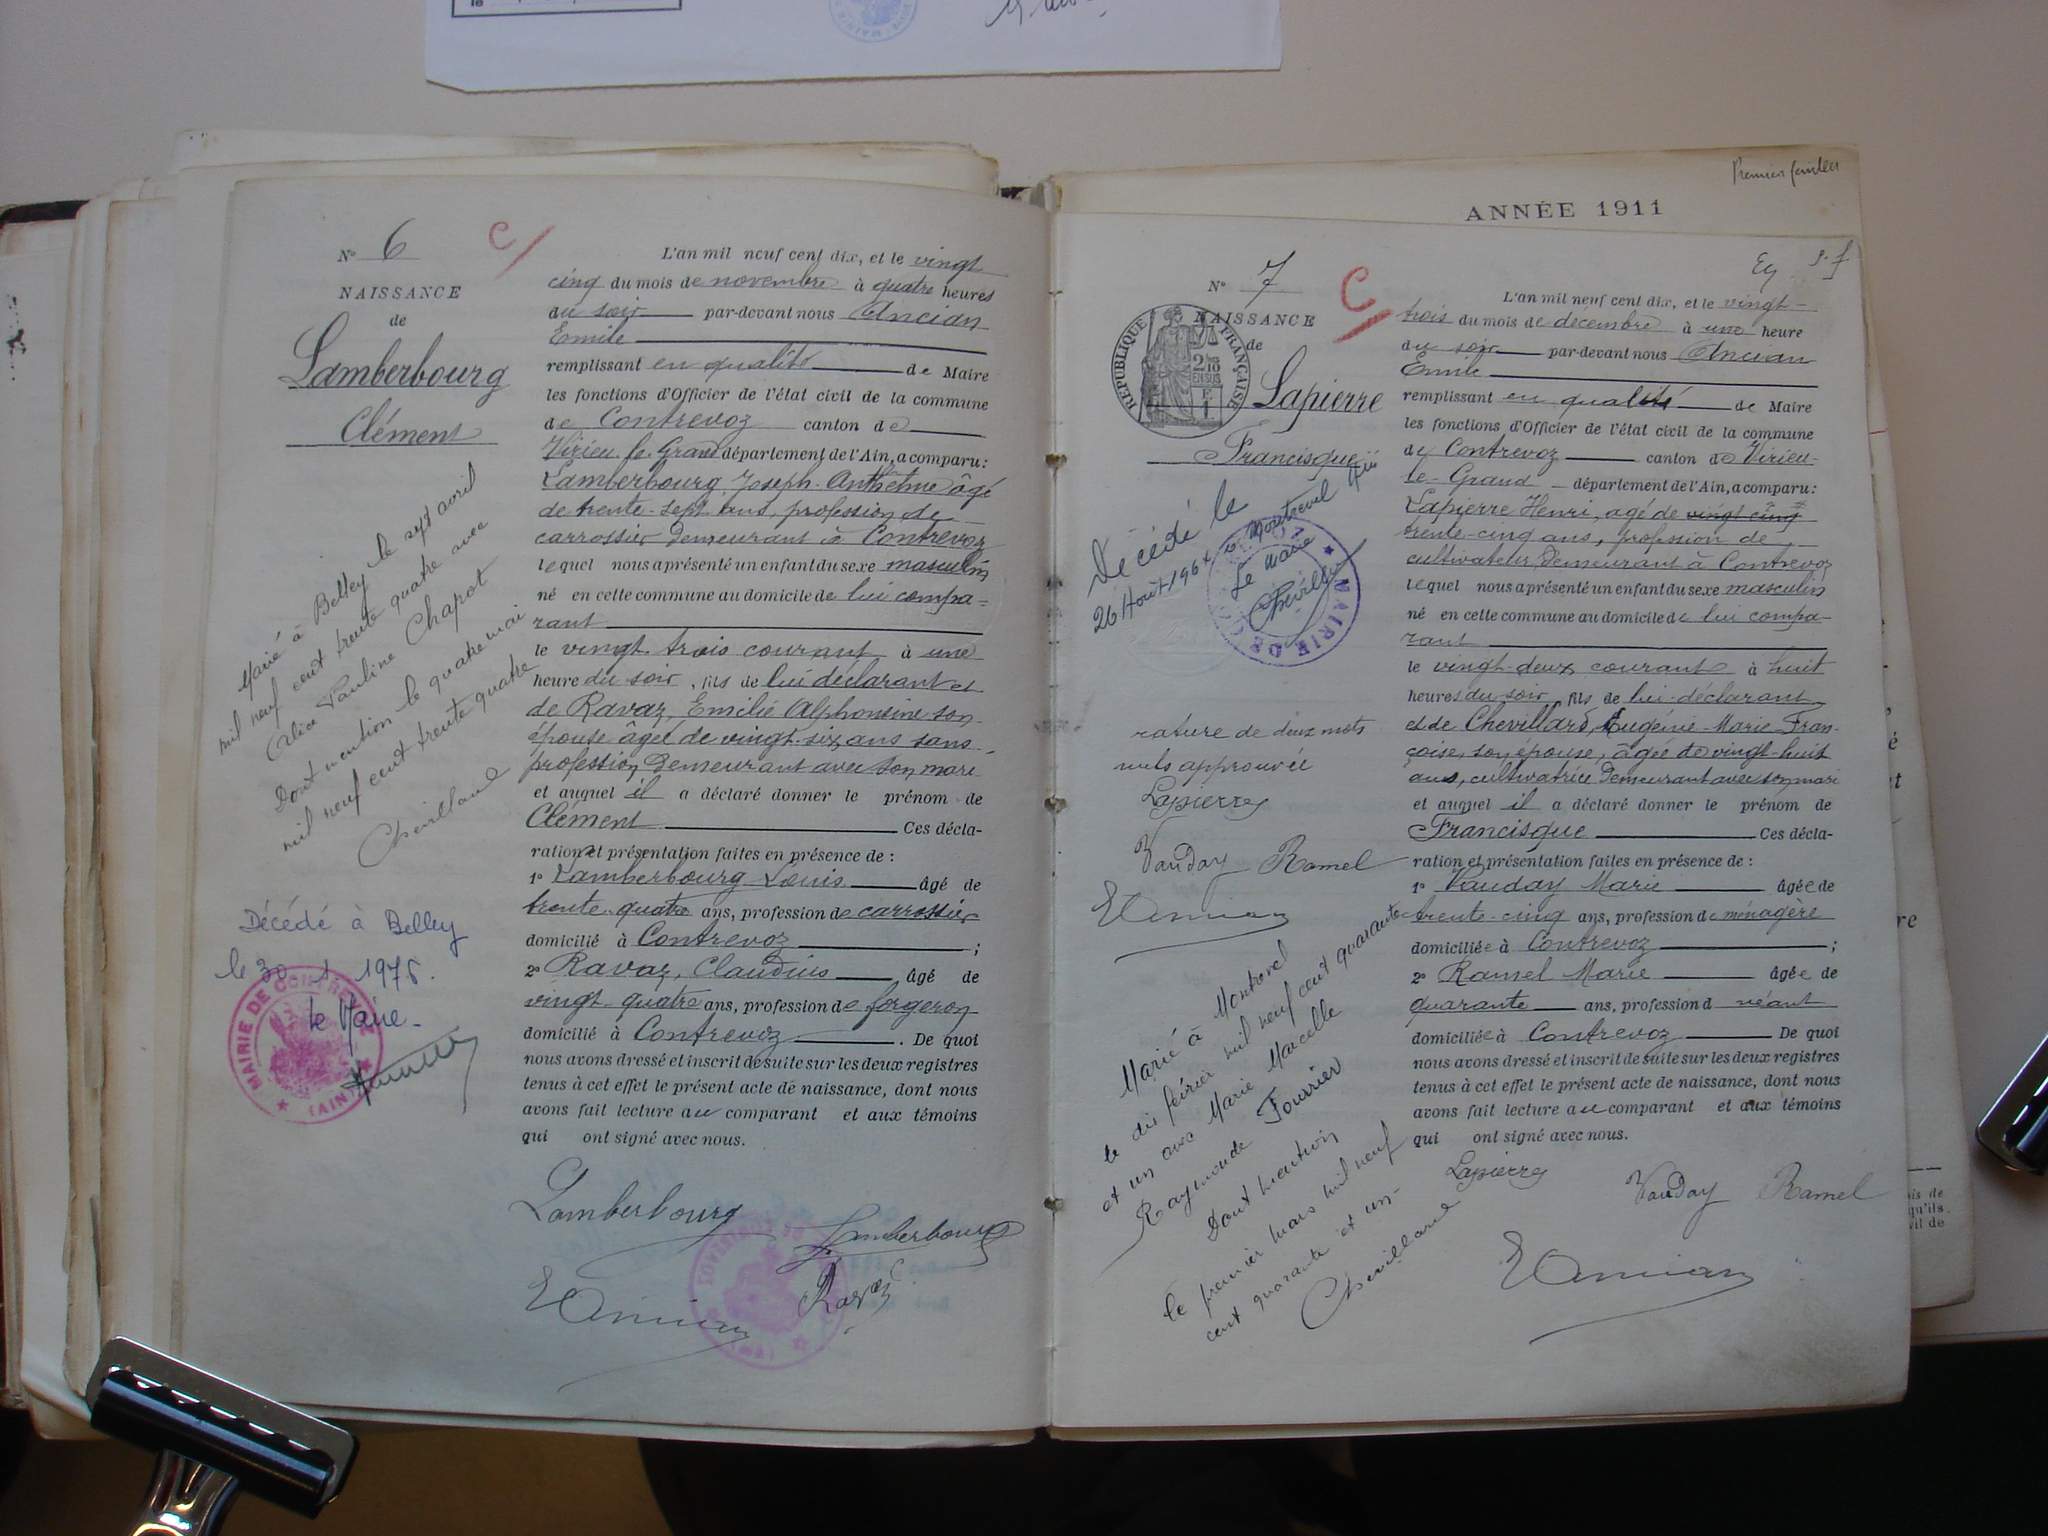 N° 6
NAISSANCE
de
Lamberbourg
Clément
Marié à Belley le sept avril
mil neuf cent trente quatre avec
Alice Pauline Chapot
Dont mention le quatre mai
mil neuf cent trente quatre
Chevillard
Décédé à Belley
le 30 1 1975.
le Maire
MAIRIE DE CONTREVOZ
(AIN)
C
L'an mil neuf cent dix, et le vingt
cinq du mois de novembre à quatre heures
du soir par-devant nous Ancian
Emile
remplissant en qualité de Maire
les fonctions d'Officier de l'état civil de la commune
de Contrevoz canton de
Virieu le Grand département de l'Ain, a comparu :
Lamberbourg Joseph-Anthelme âgé
de trente-sept ans, profession de
carrossier demeurant à Contrevoz
lequel nous a présenté un enfant du sexe masculin
né en cette commune au domicile de lui compa-
rant
le vingt trois courant à une
heure du soir, fils de lui déclarant et
de Ravaz, Emélie Alphonsine son
épouse âgée de vingt-six ans sans
profession, demeurant avec son mari
et auquel il a déclaré donner le prénom de
Clément Ces décla-
ration et présentation faites en présence de :
1° Lamberbourg Louis âgé de
trente-quatre ans, profession de carrossier
domicilié à Contrevoz ;
2° Ravaz, Claudius âgé de
vingt-quatre ans, profession de forgeron
domicilié à Contrevoz. De quoi
nous avons dressé et inscrit de suite sur les deux registres
tenus à cet effet le présent acte de naissance, dont nous
avons fait lecture au comparant et aux témoins
qui ont signé avec nous.
Lamberbourg
Lamberbourg
Ravaz
E Ancian
Premier feuillet
ANNÉE 1911
N° 7
NAISSANCE
de
RÉPUBLIQUE FRANÇAISE
Lapierre
Francisque
C
Décédé le
26 Août 1964 à Montrevel Ain
Le Maire
Chevillard
MAIRIE DE
rature de deux mots
nuls approuvée
Lapierre
Vauday Ramel
E Ancian
Marié à Montrevel
le dix février mil neuf cent quarante
et un avec Marie Marcelle
Raymonde Fourrier
Dont mention
le premier mars mil neuf
cent quarante et un.
Chevillard
L'an mil neuf cent dix, et le vingt-
trois du mois de décembre à une heure
du soir par-devant nous Ancian
Emile
remplissant en qualité de Maire
les fonctions d'Officier de l'état civil de la commune
de Contrevoz canton de Virieu-
le-Grand département de l'Ain, a comparu :
Lapierre Henri, âgé de vingt cinq
trente-cinq ans, profession de
cultivateur, demeurant à Contrevoz
lequel nous a présenté un enfant du sexe masculin
né en cette commune au domicile de lui compa-
rant
le vingt-deux courant à huit
heures du soir, fils de lui-déclarant
et de Chevillard, Eugénie-Marie-Fran-
çoise, son épouse, âgée de vingt-huit
ans, cultivatrice demeurant avec son mari
et auquel il a déclaré donner le prénom de
Francisque Ces décla-
ration et présentation faites en présence de :
1° Vauday Marie âgée de
trente-cinq ans, profession de ménagère
domiciliée à Contrevoz ;
2° Ramel Marie âgée de
quarante ans, profession d néant
domiciliée à Contrevoz De quoi
nous avons dressé et inscrit de suite sur les deux registres
tenus à cet effet le présent acte de naissance, dont nous
avons fait lecture au comparant et aux témoins
qui ont signé avec nous.
Lapierre Vauday Ramel
E Ancian